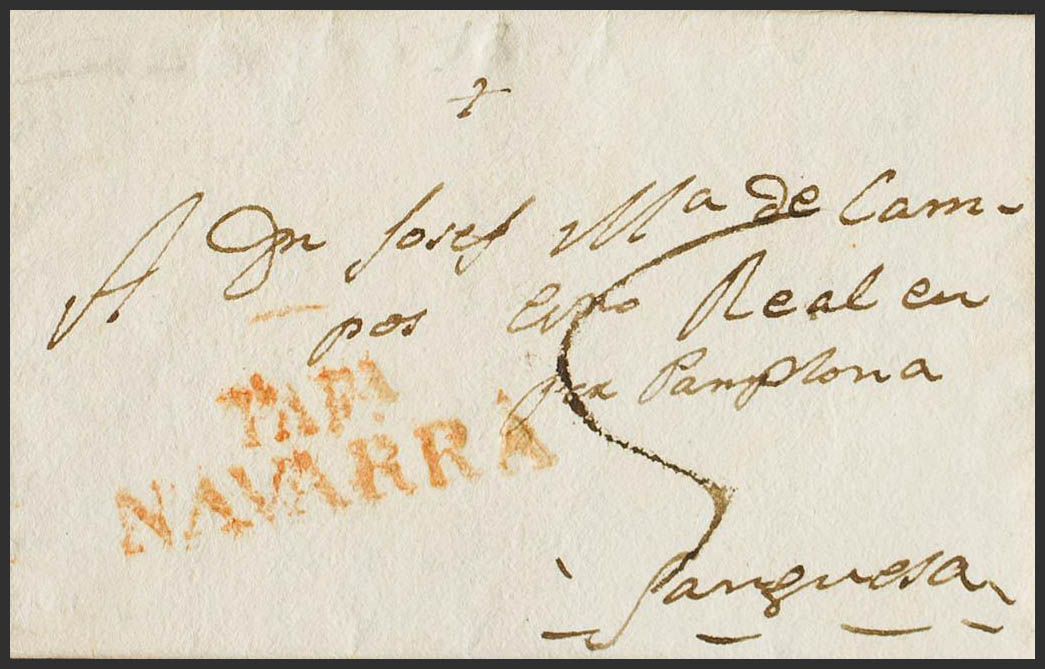 +
A Dn Josef Ma de Cam-
pos Essno Real en
por Pamplona
TAFA
NAVARRA
5
Sanguesa